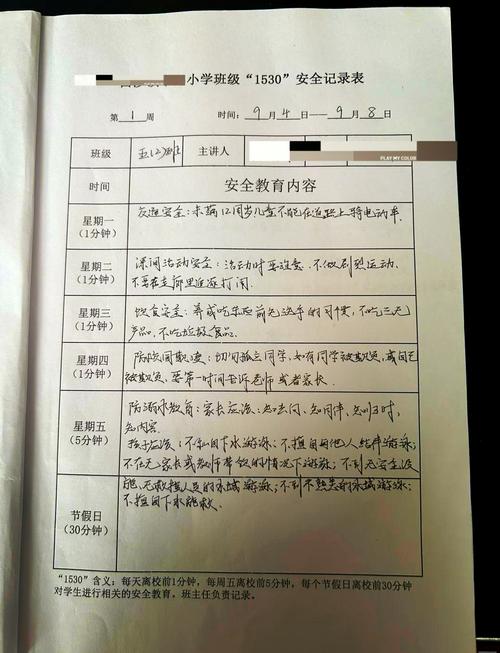 小学班级“1530”安全记录表
第 1 周 时间：9月4日——9月8日
班级 五(2)班 主讲人
PLAY MY COLOR
时间 安全教育内容
星期一
（1分钟）
交通安全：未满12周岁儿童不能在道路上骑电动车.
星期二
（1分钟）
课间活动安全：活动时要注意，不做剧烈运动、
不要在走廊里追逐打闹.
星期三
（1分钟）
饮食安全：养成吃东西前先洗手的习惯，不吃三无
产品，不吃垃圾食品.
星期四
（1分钟）
防校园欺凌：切勿孤立同学，如有同学被欺凌，或自己
被欺凌，要第一时间告诉老师或者家长.
星期五
（5分钟）
防溺水教育：家长应该：知去向、知同伴，知归时，
知内容.
孩子应该：不私自下水游泳；不擅自与他人结伴游泳；
不在无家长或教师带领的情况下游泳；不到无安全设
节假日
（30分钟）
施、无救援人员的水域游泳；不到不熟悉的水域游泳；
不擅自下水施救.
“1530”含义：每天离校前1分钟，每周五离校前5分钟，每个节假日离校前30分钟
对学生进行相关的安全教育。班主任负责记录。